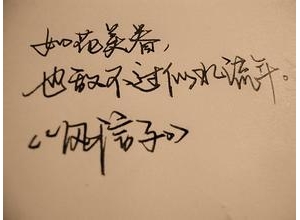 如花美眷,
也敌不过似水流年。
《
子》